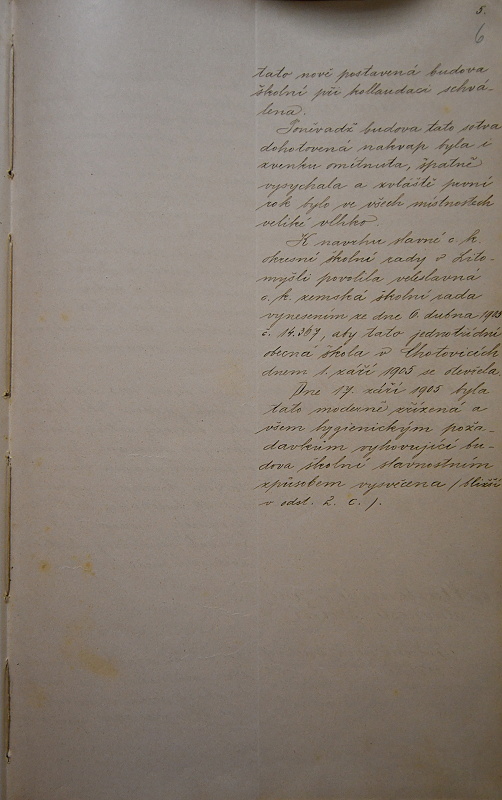 5.
6
tato nově postavená budova
školní při kollaudaci schvá-
lena.
Poněvadž budova tato sotva
dohotovená nakvap byla i
zvenku omítnuta, špatně
vysychala a zvláště první
rok bylo ve všech místnostech
veliké vlhko.
K návrhu slavné c. k.
okresní školní rady v Lito-
myšli povolila veleslavná
c. k. zemská školní rada
vynesením ze dne 6. dubna 1905
č. 14.367, aby tato jednotřídní
obecná škola v Chotovicích
dnem 1. září 1905 se otevřela.
Dne 17. září 1905 byla
tato moderně zřízená a
všem hygienickým poža-
davkům vyhovující bu-
dova školní slavnostním
způsobem vysvěcena (bližší
v odst. 2. c.).